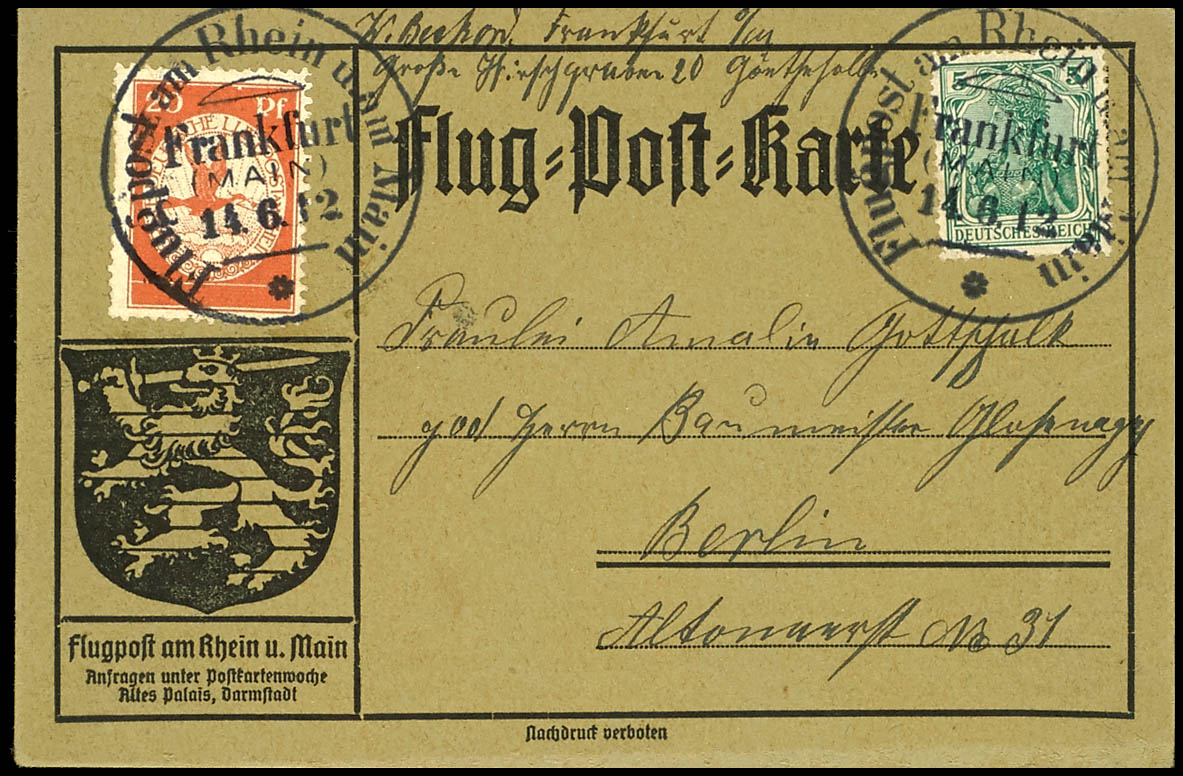 Frankfurt a/M
Große Hirschgraben 20 Goethehalle
Flug-Post-Karte
20 Pf
Flugpost am Rhein u. am Main
Frankfurt
(MAIN)
14.6.12
5 5
DEUTSCHES REICH
Flugpost am Rhein u. am Main
Frankfurt
(MAIN)
14.6.12
Fräulei Amalie Gottschalk
Herrn Baumeister
Berlin
Altonaerst No 31
Flugpost am Rhein u. Main
Anfragen unter Postkartenwoche
Altes Palais, Darmstadt
Nachdruck verboten